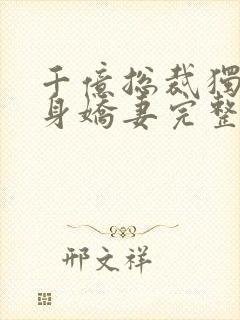 千億總裁獨
身嬌妻完整
邢文祥